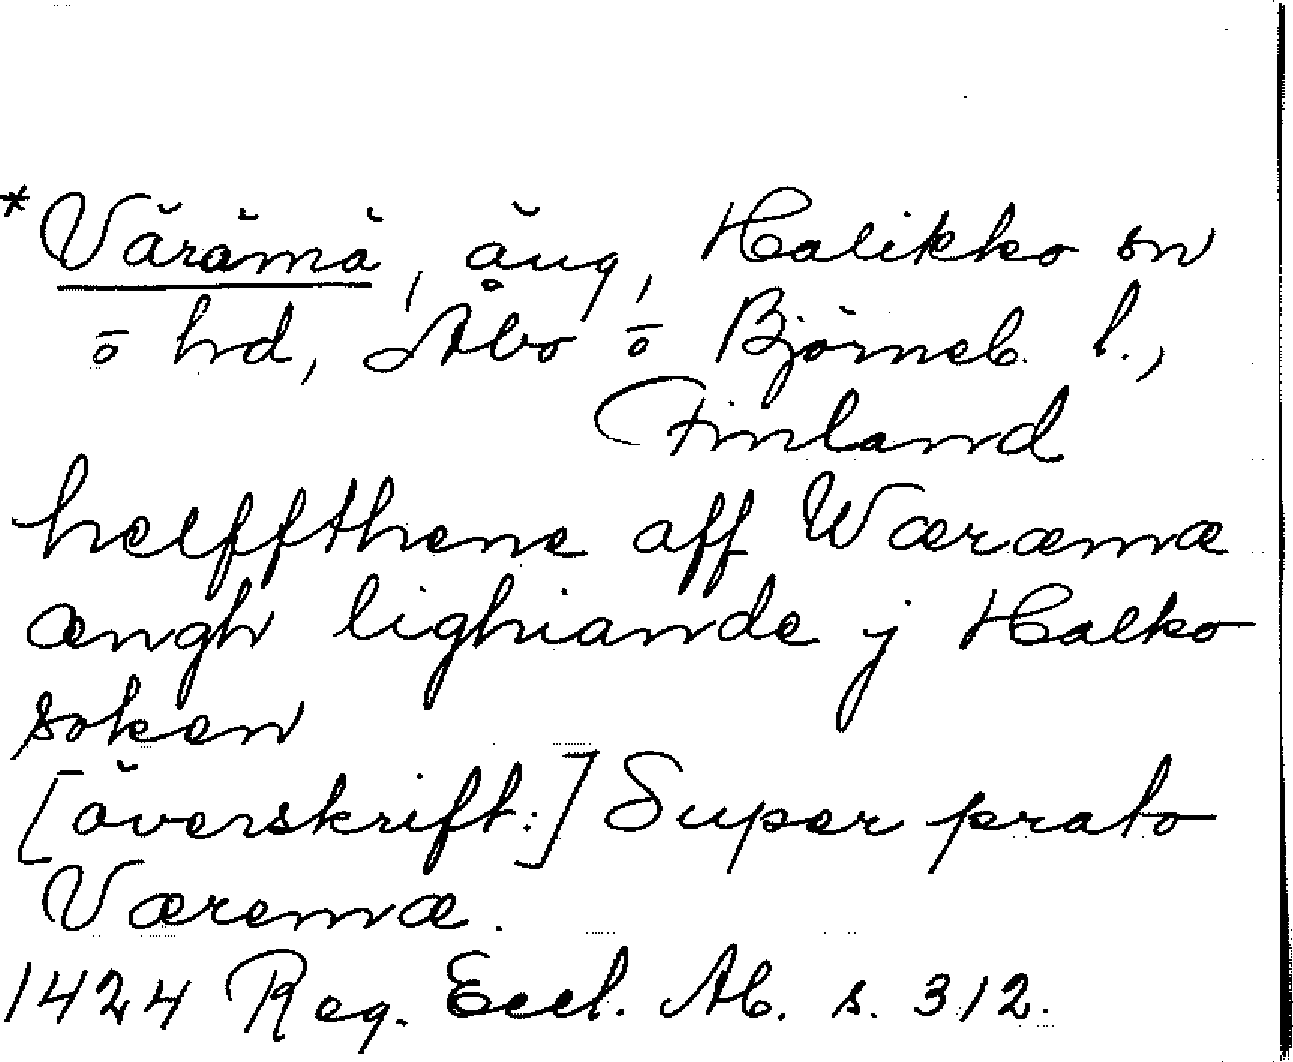 *Värämä, äng, Halikko sn
o hd, Åbo o Björneb. l.,
Finland
helffthene aff Wæræmæ
ængh lighiande j Halko
soken
[överskrift:] Super prato
Væremæ.
1424 Reg. Eccl. Ab. s. 312.